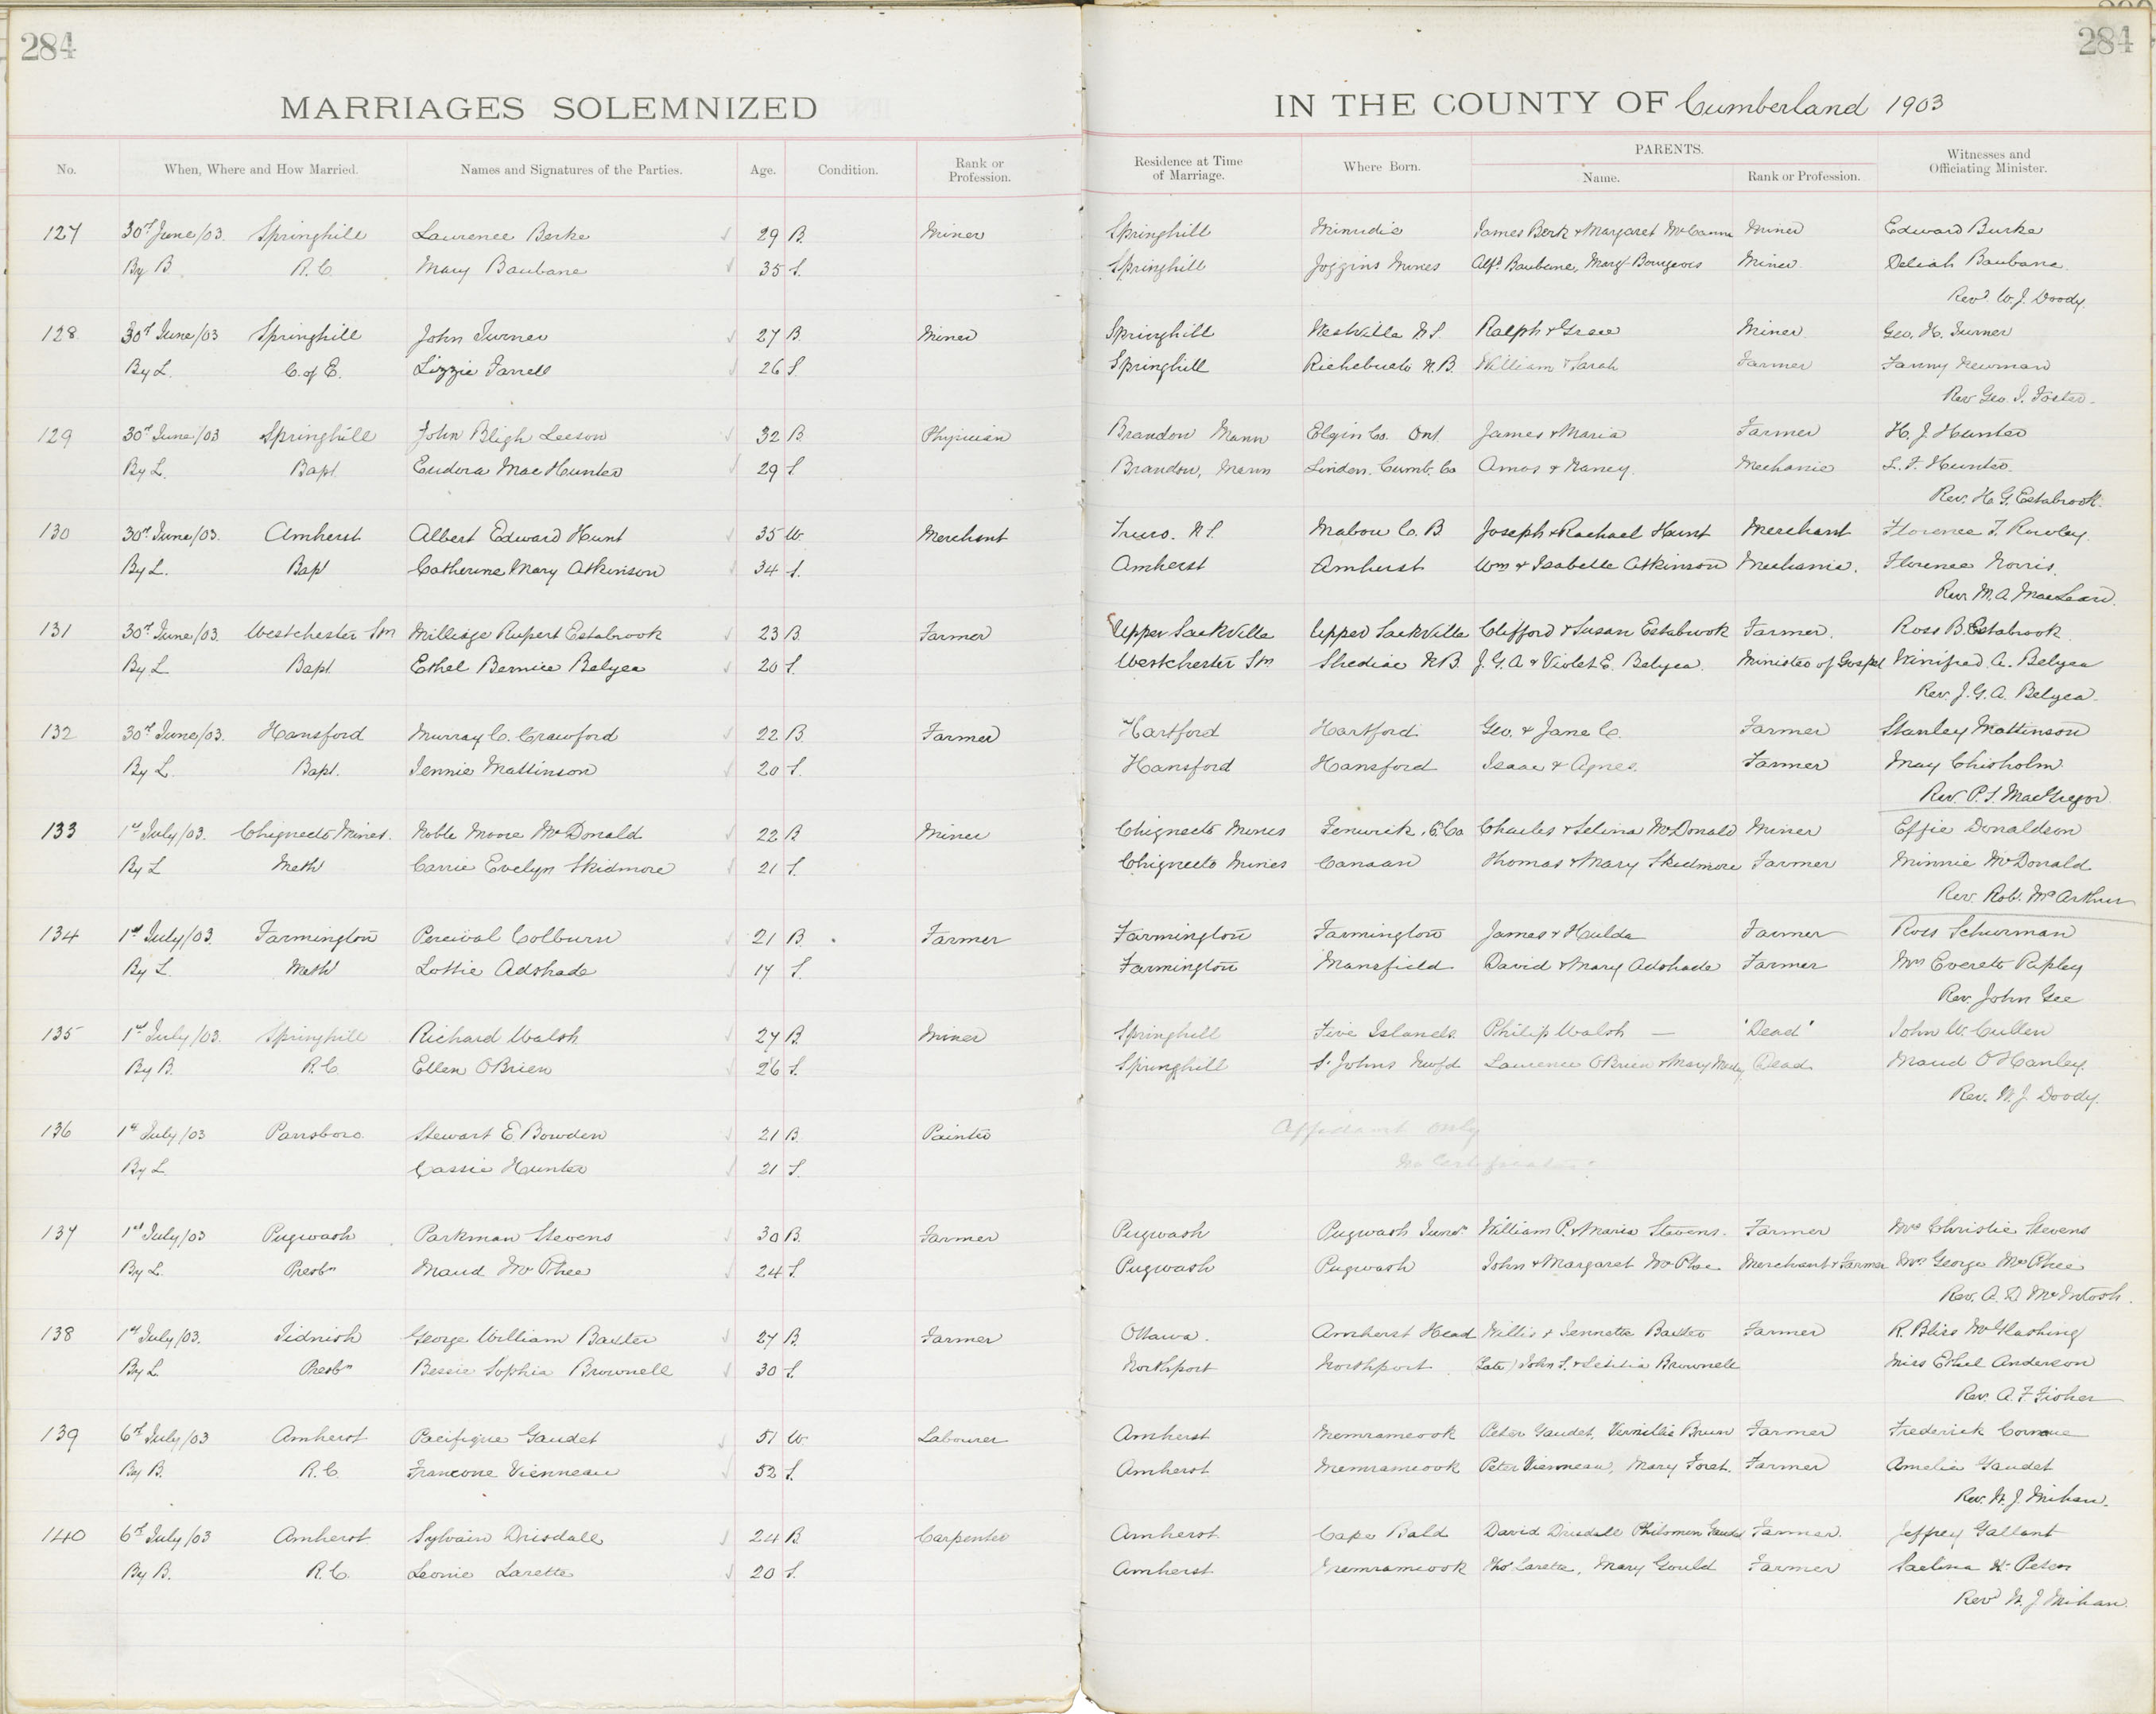 284 284
MARRIAGES SOLEMNIZED IN THE COUNTY OF Cumberland 1903
No. When, Where and How Married. Names and Signatures of the Parties. Age. Condition. Rank or Profession. Residence at Time of Marriage. Where Born. PARENTS. Name. Rank or Profession. Witnesses and Officiating Minister.
127 30th June/03. Springhill Laurence Berke 29 B. Miner Springhill Minudie James Berk & Margaret McCann Miner Edward Burke
By B. R.C. Mary Baubane 35 S. Springhill Joggins Mines Alfd Baubane, Margt Bourgeois Miner Deliah Baubane
Revd W.J. Doody.
128 30th June/03 Springhill John Turner 27 B. Miner Springhill Westville N.S. Ralph & Grace Miner Geo. H. Turner
By L. C. of E. Lizzie Farrell 26 S. Springhill Richebucto N.B. William & Sarah Farmer Fanny Newman
Rev Geo. I. Foster.
129 30th June/03 Springhill John Bligh Leeson 32 B. Physician Brandon Mann Elgin Co. Ont. James & Maria Farmer H. J. Hunter
By L. Bapt. Eudora Mae Hunter 29 S Brandon, Mann Linden, Cumb. Co Amos & Nancy. Mechanic L. F. Hunter.
Rev. H. G. Estabrook.
130 30th June/03. Amherst Albert Edward Hunt 35 W. Merchant Truro. N.S. Mabou C.B. Joseph & Rachael Hunt Merchant Florence T. Rowley.
By L. Bapt Catherine Mary Atkinson 34 S. Amherst Amherst Wm & Isabelle Atkinson Mechanic. Florence Norris.
Rev M. A. MacLean.
131 30th June/03. Westchester Stn Milledge Rupert Estabrook 23 B. Farmer Upper Sackville Upper Sackville Clifford & Susan Estabrook Farmer. Ross B. Estabrook
By L Bapt. Ethel Bernice Belyea 20 S. Westchester Stn Shediac N.B. J. G. A. & Violet E. Belyea. Minister of Gospel Winifred A. Belyea
Rev. J. G. A. Belyea.
132 30th June/03. Hansford Murray C. Crawford 22 B. Farmer Hartford Hartford Geo. & Jane C. Farmer Stanley Mattinson
By L. Bapt. Jennie Mattinson 20 S. Hansford Hansford Isaac & Agnes. Farmer May Chisholm
Rev. P. S. MacGregor
133 1st July/03. Chignecto Mines. Noble Moore McDonald 22 B Miner Chignecto Mines Fenwick, C. Co Charles & Selina McDonald Miner Effie Donaldson
By L Meth Carrie Evelyn Skidmore 21 S. Chignecto Mines Canaan Thomas & Mary Skidmore Farmer Minnie McDonald
Rev. Rob. McArthur
134 1st July/03. Farmington Percival Colburn 21 B. Farmer Farmington Farmington James & Hulda Farmer Ross Schurman
By L. Meth Lottie Adshade 17 S. Farmington Mansfield David & Mary Adshade Farmer Mrs Everett Ripley
Rev. John Gee
135 1st July/03. Springhill Richard Walsh 27 B. Miner Springhill Five Islands. Philip Walsh — "Dead" John W. Cullen
By B. R.C. Ellen O'Brien 26 S. Springhill St Johns Nwfd Laurence O'Brien & Mary Dead Maud O'Hanley.
Rev. W. J. Doody.
136 1st July/03 Parrsboro. Stewart E Bowden 21 B. Painter Affidavit only
By L. Cassie Hunter 21 S. No Certificate.
137 1st July/03 Pugwash Parkman Stevens 30 B. Farmer Pugwash Pugwash Juncn William P. & Maria Stevens. Farmer Mrs Christie Stevens
By L. Presbn Maud McPhee 24 S. Pugwash Pugwash John & Margaret McPhee Merchant & Farmer Mrs George McPhee
Rev. A. D. McIntosh.
138 1st July/03. Tidnish George William Baxter 27 B. Farmer Ottawa. Amherst Head Willis & Jennette Baxter Farmer R. Bliss McGlashing
By L. Presbn Bessie Sophia Brownell 30 S. Northport Northport (Late) John S. & Letitia Brownell Miss Ethel Anderson
Rev. A. F. Fisher
139 6th July/03 Amherst Pacifique Gaudet 51 W. Labourer Amherst Memramcook Peter Gaudet, Brun Farmer Frederick
By B. R.C. Vienneau 52 S. Amherst Memramcook Peter Vienneau, Mary Foret. Farmer Amelia Gaudet
Rev. W. J. Mihan.
140 6th July/03 Amherst Sylvain Drisdale 24 B. Carpenter Amherst Cape Bald David Drisdale Philomen Gaudet Farmer. Jeffrey Gallant
By B. R.C. Leonie Larette 20 S. Amherst Memramcook Thos Larette, Mary Gould Farmer Peters
Revd W. J. Mihan.